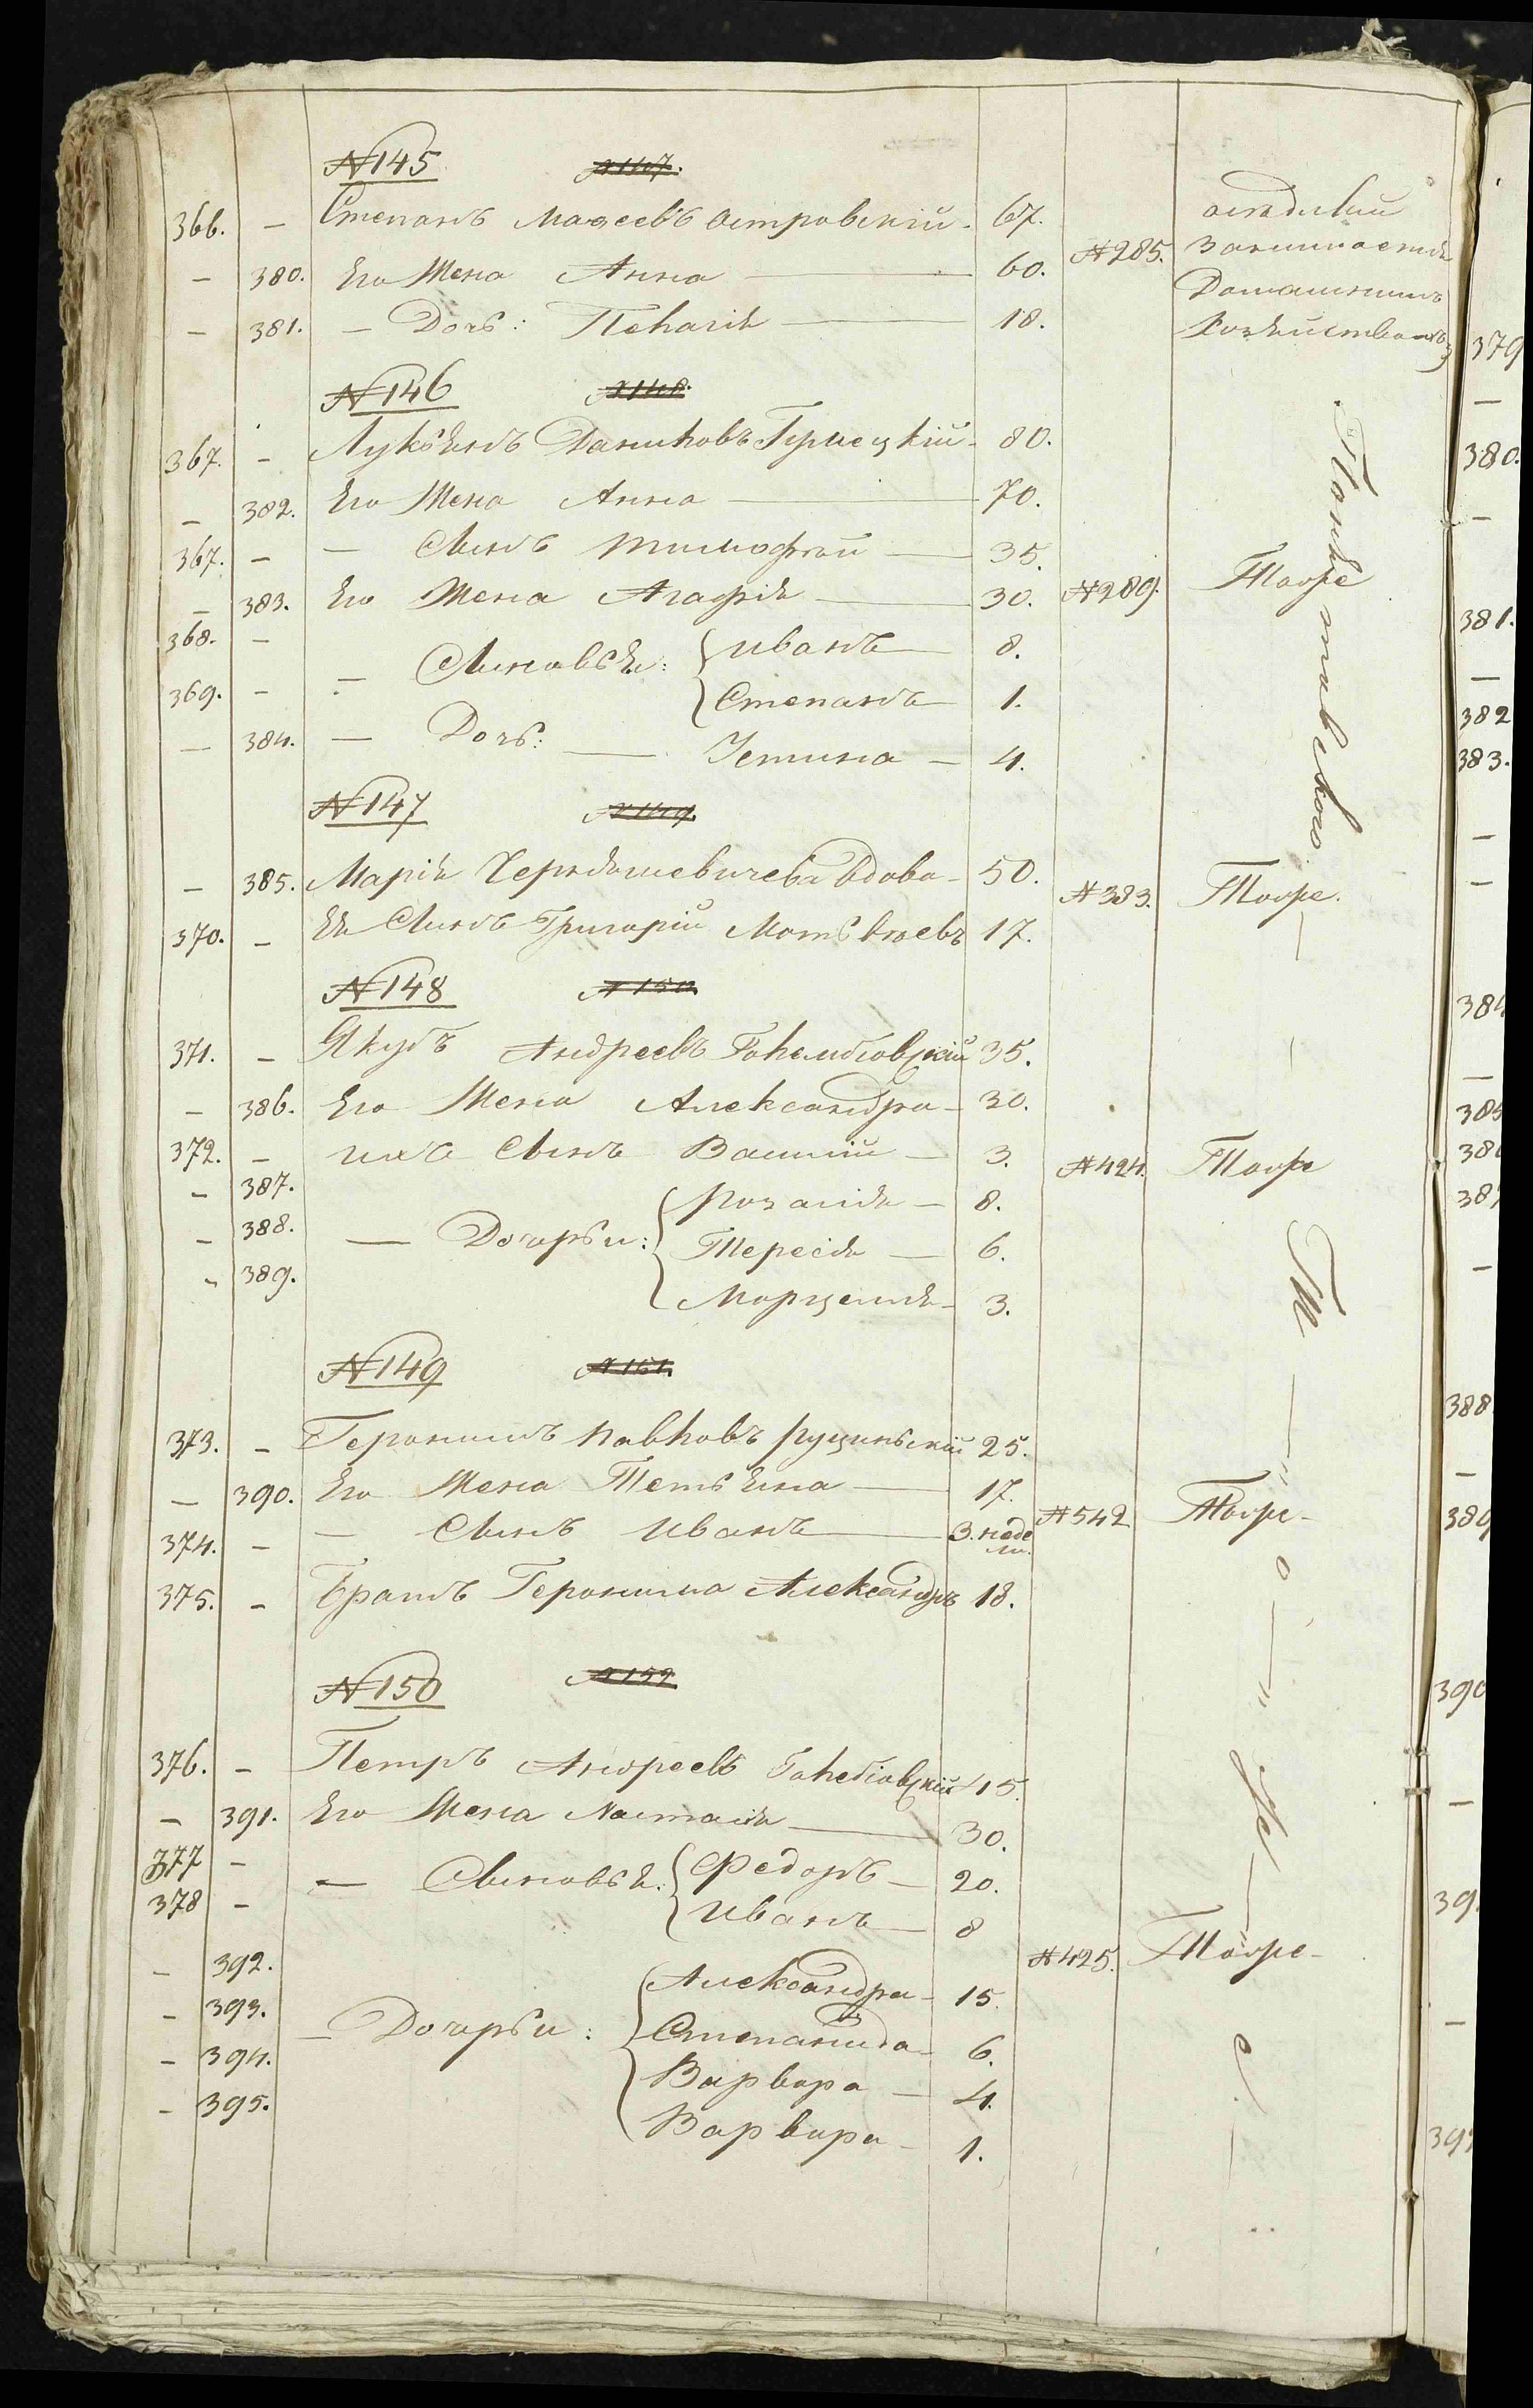 №145 №147.
366. — Степанъ Мазеевъ Островскій. 67. оседлый
— 380. Его Жена Анна — 60. №285. Занимается
— 381. — Дочь: Пелагія — 18. Домашнимъ Хозяйствомъ
№146 №148.
367. — Лукьянъ Даниловъ Гурецкій 80.
— 382. Его Жена Анна — 70.
367. — — Сынъ Тимофей — 35.
— 383. Его Жена Агафія — 30. №289. Тоже
368. — — Сыновья: Иванъ — 8.
369. — Степанъ — 1.
— 384. — Дочь: — Устина — 4.
№147 №149.
— 385. Марія вдова — 50. №383. Тоже.
370. — Ея Сынъ Григорій Матьвѣевъ 17.
№148 №150.
371. — Якубъ Андреевъ Голембіовскій 35.
— 386. Его Жена Александра — 30.
372. — ихъ Сынъ Василій — 3. №424. Тоже
— 387. Розалія — 8.
— 388. — Дочерьи: Тересія — 6.
— 389. Марцелія — 3.
№149 №151.
373. — Геронимъ Павловъ Руциньскій 25.
— 390. Его Жена Тетьяна — 17. №542 Тоже —
374. — — Сынъ Иванъ — 3. неде ли.
375. — Братъ Геронима Александръ 18.
№150 №152
376. — Петръ Андреевъ Голебіовскій 45.
— 391. Его Жена Насталія — 30.
377 — — Сыновья: Федоръ — 20.
378 — Иванъ — 8
— 392. Александра — 15. №425. Тоже —
— 393. — Дочерьи: Степанида — 6.
— 394. Варвара — 4.
— 395. Варвара — 1.
379
380.
381.
382
383.
388
389
390